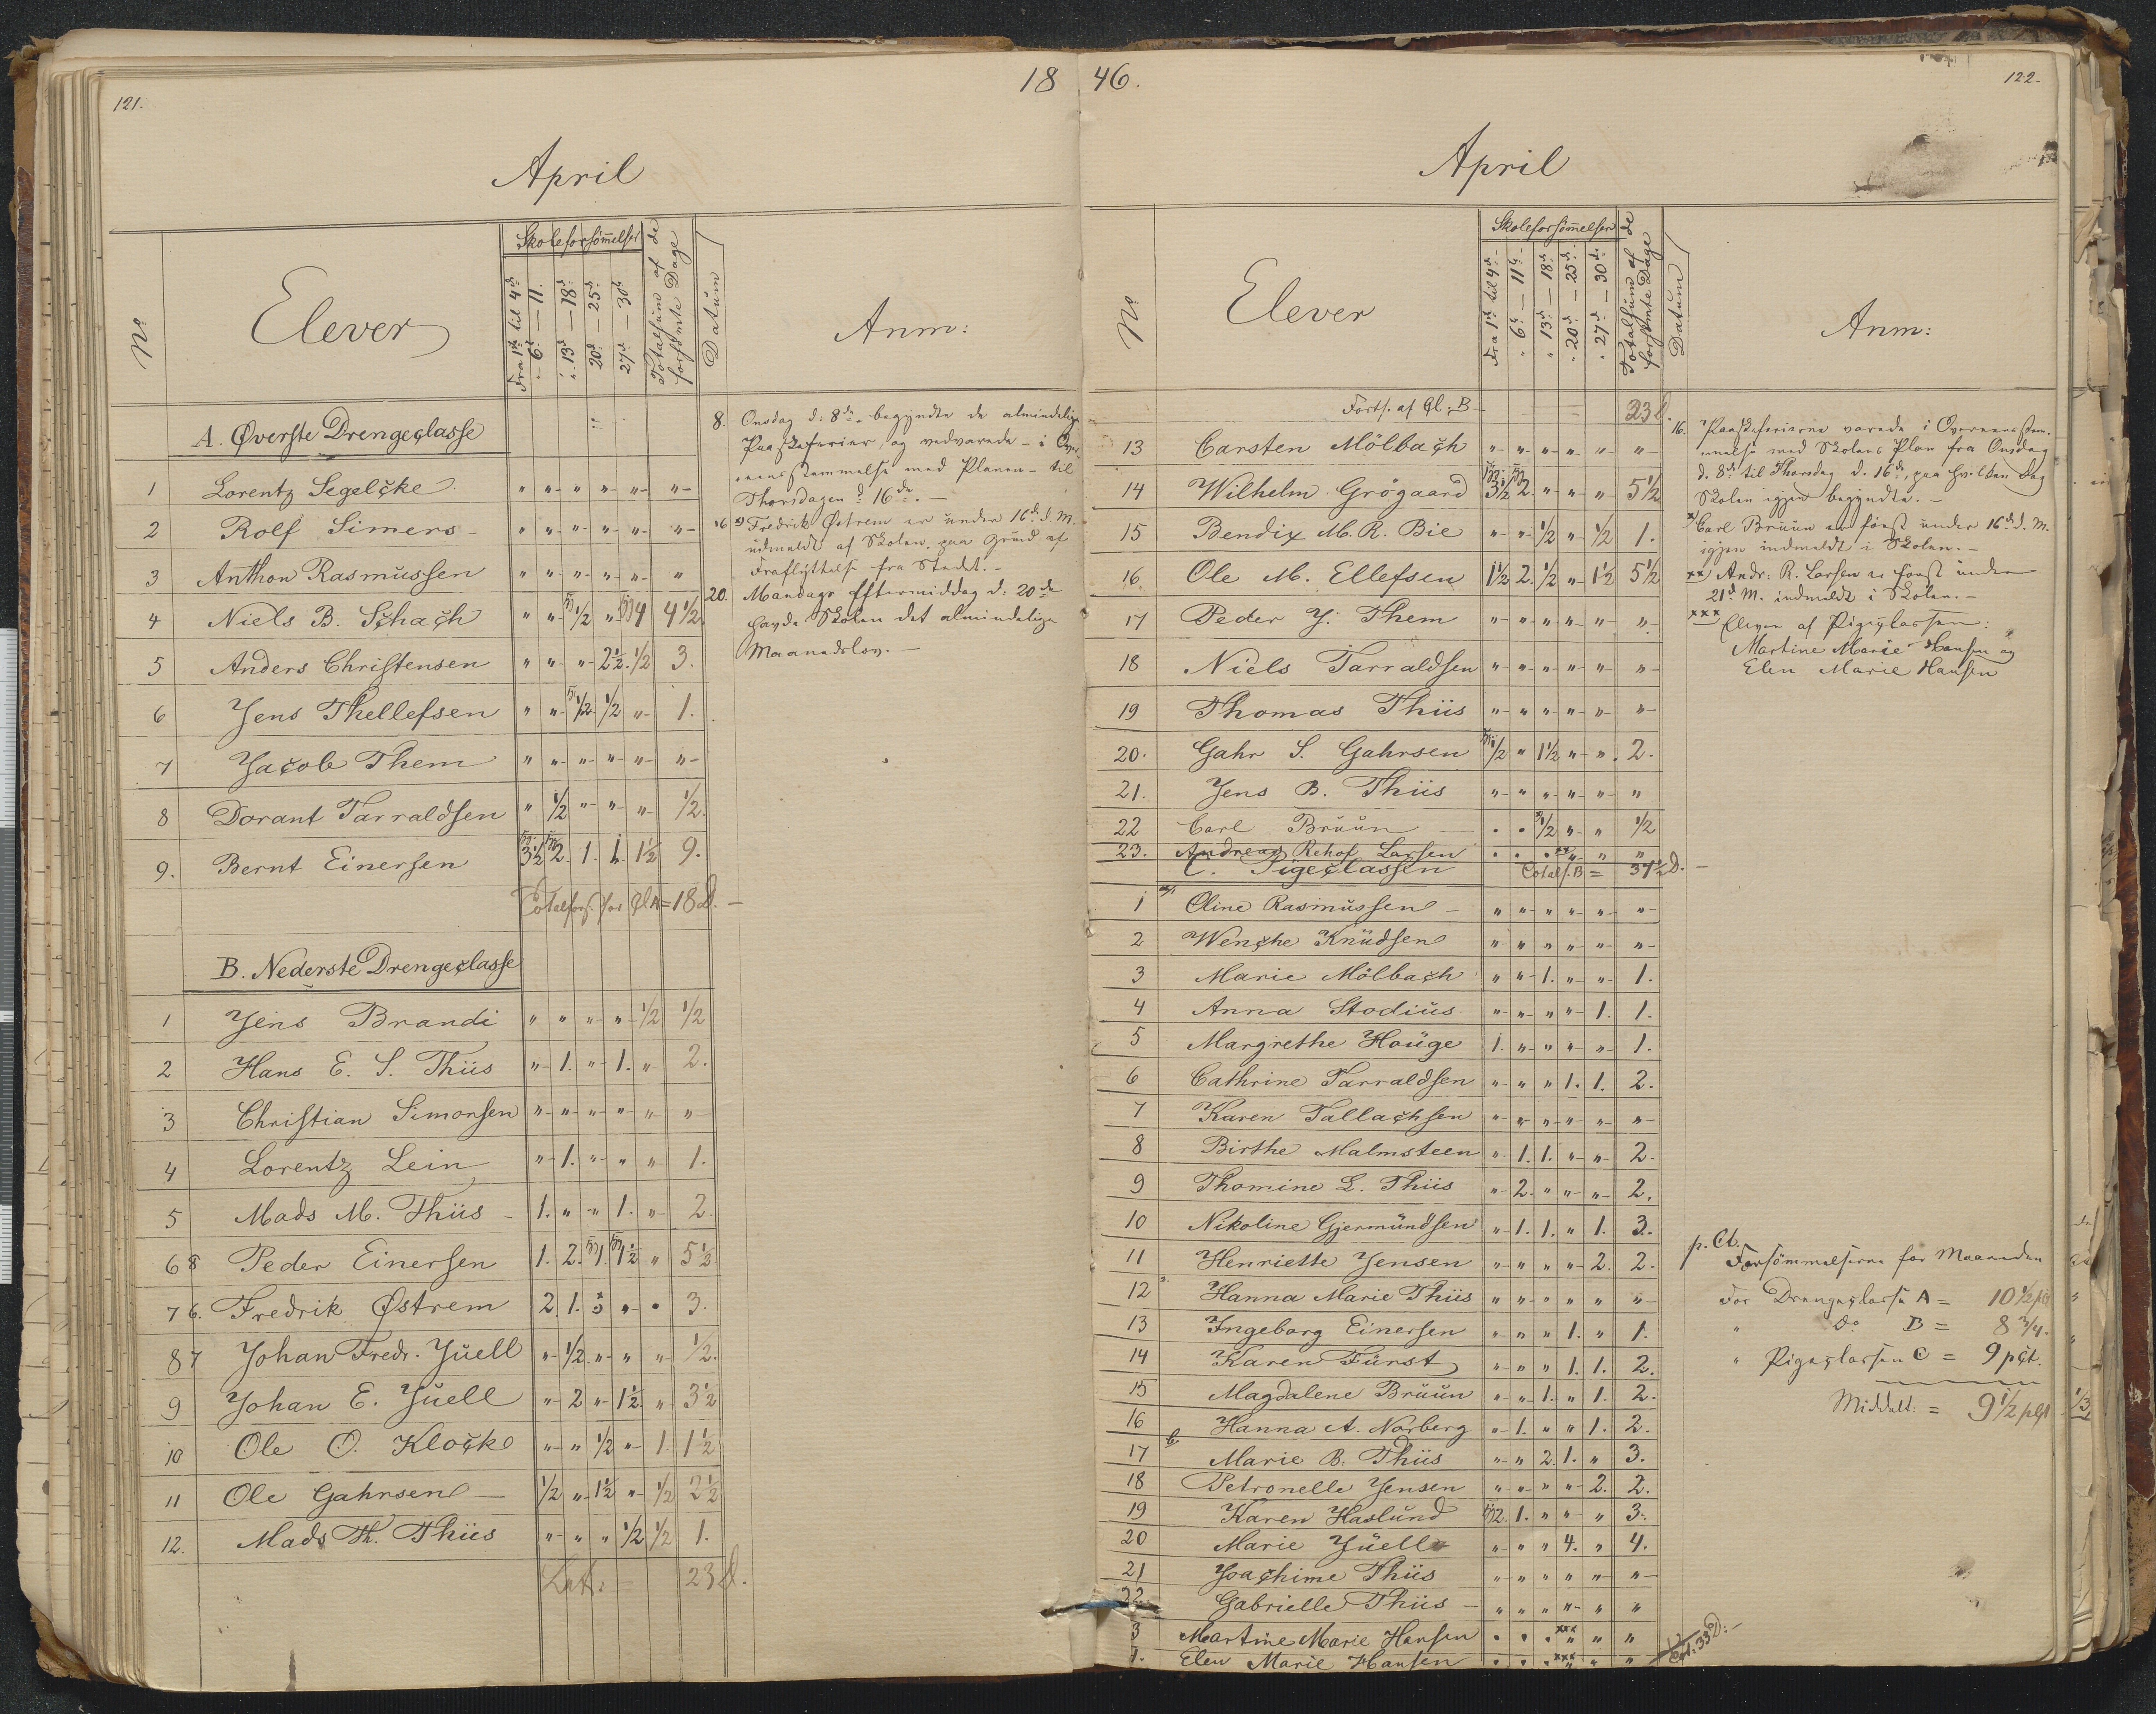 121.
18
April
No
Elever
Skoleforsömmelser
Fra 1ste til 4de
" 6te — 11.
" 13de — 18de
20de — 25de
27de — 30te
Totalsum af de forsömte Dage
Datum
Anm:
A. Øverste Drengeclasse
1 Lorentz Segelcke " " " " " "
2 Rolf Simers " " " " " "
3 Anthon Rasmussen " " " " " "
4 Niels B. Schach " " 1/2 " 4 4 1/2
5 Anders Christensen " " " 2 1/2 1/2 3.
6 Jens Thellefsen " " 1/2 1/2 " 1.
7 Jacob Them " " " " " "
8 Dorant Tarraldsen " 1/2 " " " 1/2.
9. Bernt Einersen 3 1/2 2. 1. 1. 1 1/2 9.
Totalfors. for Cl A = 18 D.
B. Nederste Drengeclasse
1 Jens Brandi " " " " 1/2 1/2
2 Hans E. S. Thiis " 1. " 1. " 2.
3 Christian Simonsen " " " " " "
4 Lorentz Lein " 1. " " " 1.
5 Mads M. Thiis 1. " " 1. " 2.
6 8 Peder Einersen 1. 2. 1. 1 1/2 " 5 1/2
7 6. Fredrik Østrem 2. 1. " . 3.
8 7 Johan Fredr. Juell " 1/2 " " " 1/2.
9 Johan E. Juell " 2 " 1 1/2 " 3 1/2
10 Ole O. Klocke " " 1/2 " 1. 1 1/2
11 Ole Gahrsen 1/2 " 1 1/2 " 1/2 2 1/2
12. Mads Th. Thiis " " " 1/2 1/2 1.
Lat. = 23 D.
8. Onsdag d: 8de begyndte de almindelige
Paaskeferier, og vedvarede – i Over-
eensstemmelse med Planen – til
Thorsdagen d. 16de. –
16 x) Fredrik Østrem er under 16de d. M.
udmeldt af Skolen, paa Grund af
Fraflyttelse fra Stedet. –
20. Mandags Eftermiddag d: 20de
havde Skolen det almindelige
Maanedslov. –
46.
122.
April
No
Elever
Skoleforsömmelser
Fra 1ste til 4de
" 6te — 11te
" 13de — 18de
" 20de — 25de
" 27de — 30te
Totalsum af de forsömte Dage
Datum
Anm:
Forts. af Cl. B 23 D.
13 Carsten Mölbach " " " " " "
14 Wilhelm Grögaard 3 1/2 2. " " " 5 1/2
15 Bendix M. R. Bie " " 1/2 " 1/2 1.
16. Ole M. Ellefsen 1 1/2 2. 1/2 " 1 1/2 5 1/2
17 Peder J. Them " " " " " "
18 Niels Tarraldsen " " " " " "
19 Thomas Thiis " " " " " "
20. Gahr S. Gahrsen 1/2 " 1 1/2 " " 2.
21. Jens B. Thiis " " " " " "
22 Carl Bruun . . 1/2 " " 1/2
23. Andreas Rehof Larsen . . . xx " " "
C. Pigeclassen
Total f. B = 37 1/2 D. –
1 Oline Rasmussen " " " " " "
2 Wenche Knudsen " " " " " "
3 Marie Mölbach " " 1. " " 1.
4 Anna Stodius " " " " 1. 1.
5 Margrethe Houge 1. " " " " 1.
6 Cathrine Tarraldsen " " " 1. 1. 2.
7 Karen Tallachsen " " " " " "
8 Birthe Malmsteen " 1. 1. " " 2.
9 Thomine L. Thiis " 2. " " " 2.
10 Nikoline Gjermundsen " 1. 1. " 1. 3.
11 Henriette Jensen " " " " 2. 2.
12 Hanna Marie Thiis " " " " " "
13 Ingeborg Einersen " " " 1. " 1.
14 Karen Fürst " " " 1. 1. 2.
15 Magdalene Bruun " " 1. " 1. 2.
16 Hanna A. Norberg " 1. " " 1. 2.
17 Marie B. Thiis " " 2. 1. " 3.
18 Petronelle Jensen " " " " 2. 2.
19 Karen Haslund 2. 1. " " " 3.
20 Marie Juell " " " 4. " 4.
21 Joachime Thiis " " " " " "
22. Gabrielle Thiis " " " " " "
3 Martine Marie Hansen . . . xxx " "
4. Elen Marie Hansen . . . xxx " "
Tot: 33 D: –
16. Paaskeferierne varede i Overeensstem-
melse med Skolens Plan fra Onsdag
d. 8de til Thorsdag d. 16de, paa hvilken Dag
Skolen igjen begyndte. –
x) Carl Bruun er först under 16de d. M.
igjen indmeldt i Skolen. –
xx) Andr: R. Larsen er först under
21de M. indmeldt i Skolen. –
xxx Elever af Pigeclassen:
Martine Marie Hansen og
Elen Marie Hansen
p. Ct.
Forsömmelserne for Maaneden
for Drengeclasse A = 10 1/2 pCt
" do B = 8 3/4.
" Pigeclassen C = 9 pCt.
Middelt: = 9 1/2 pCt